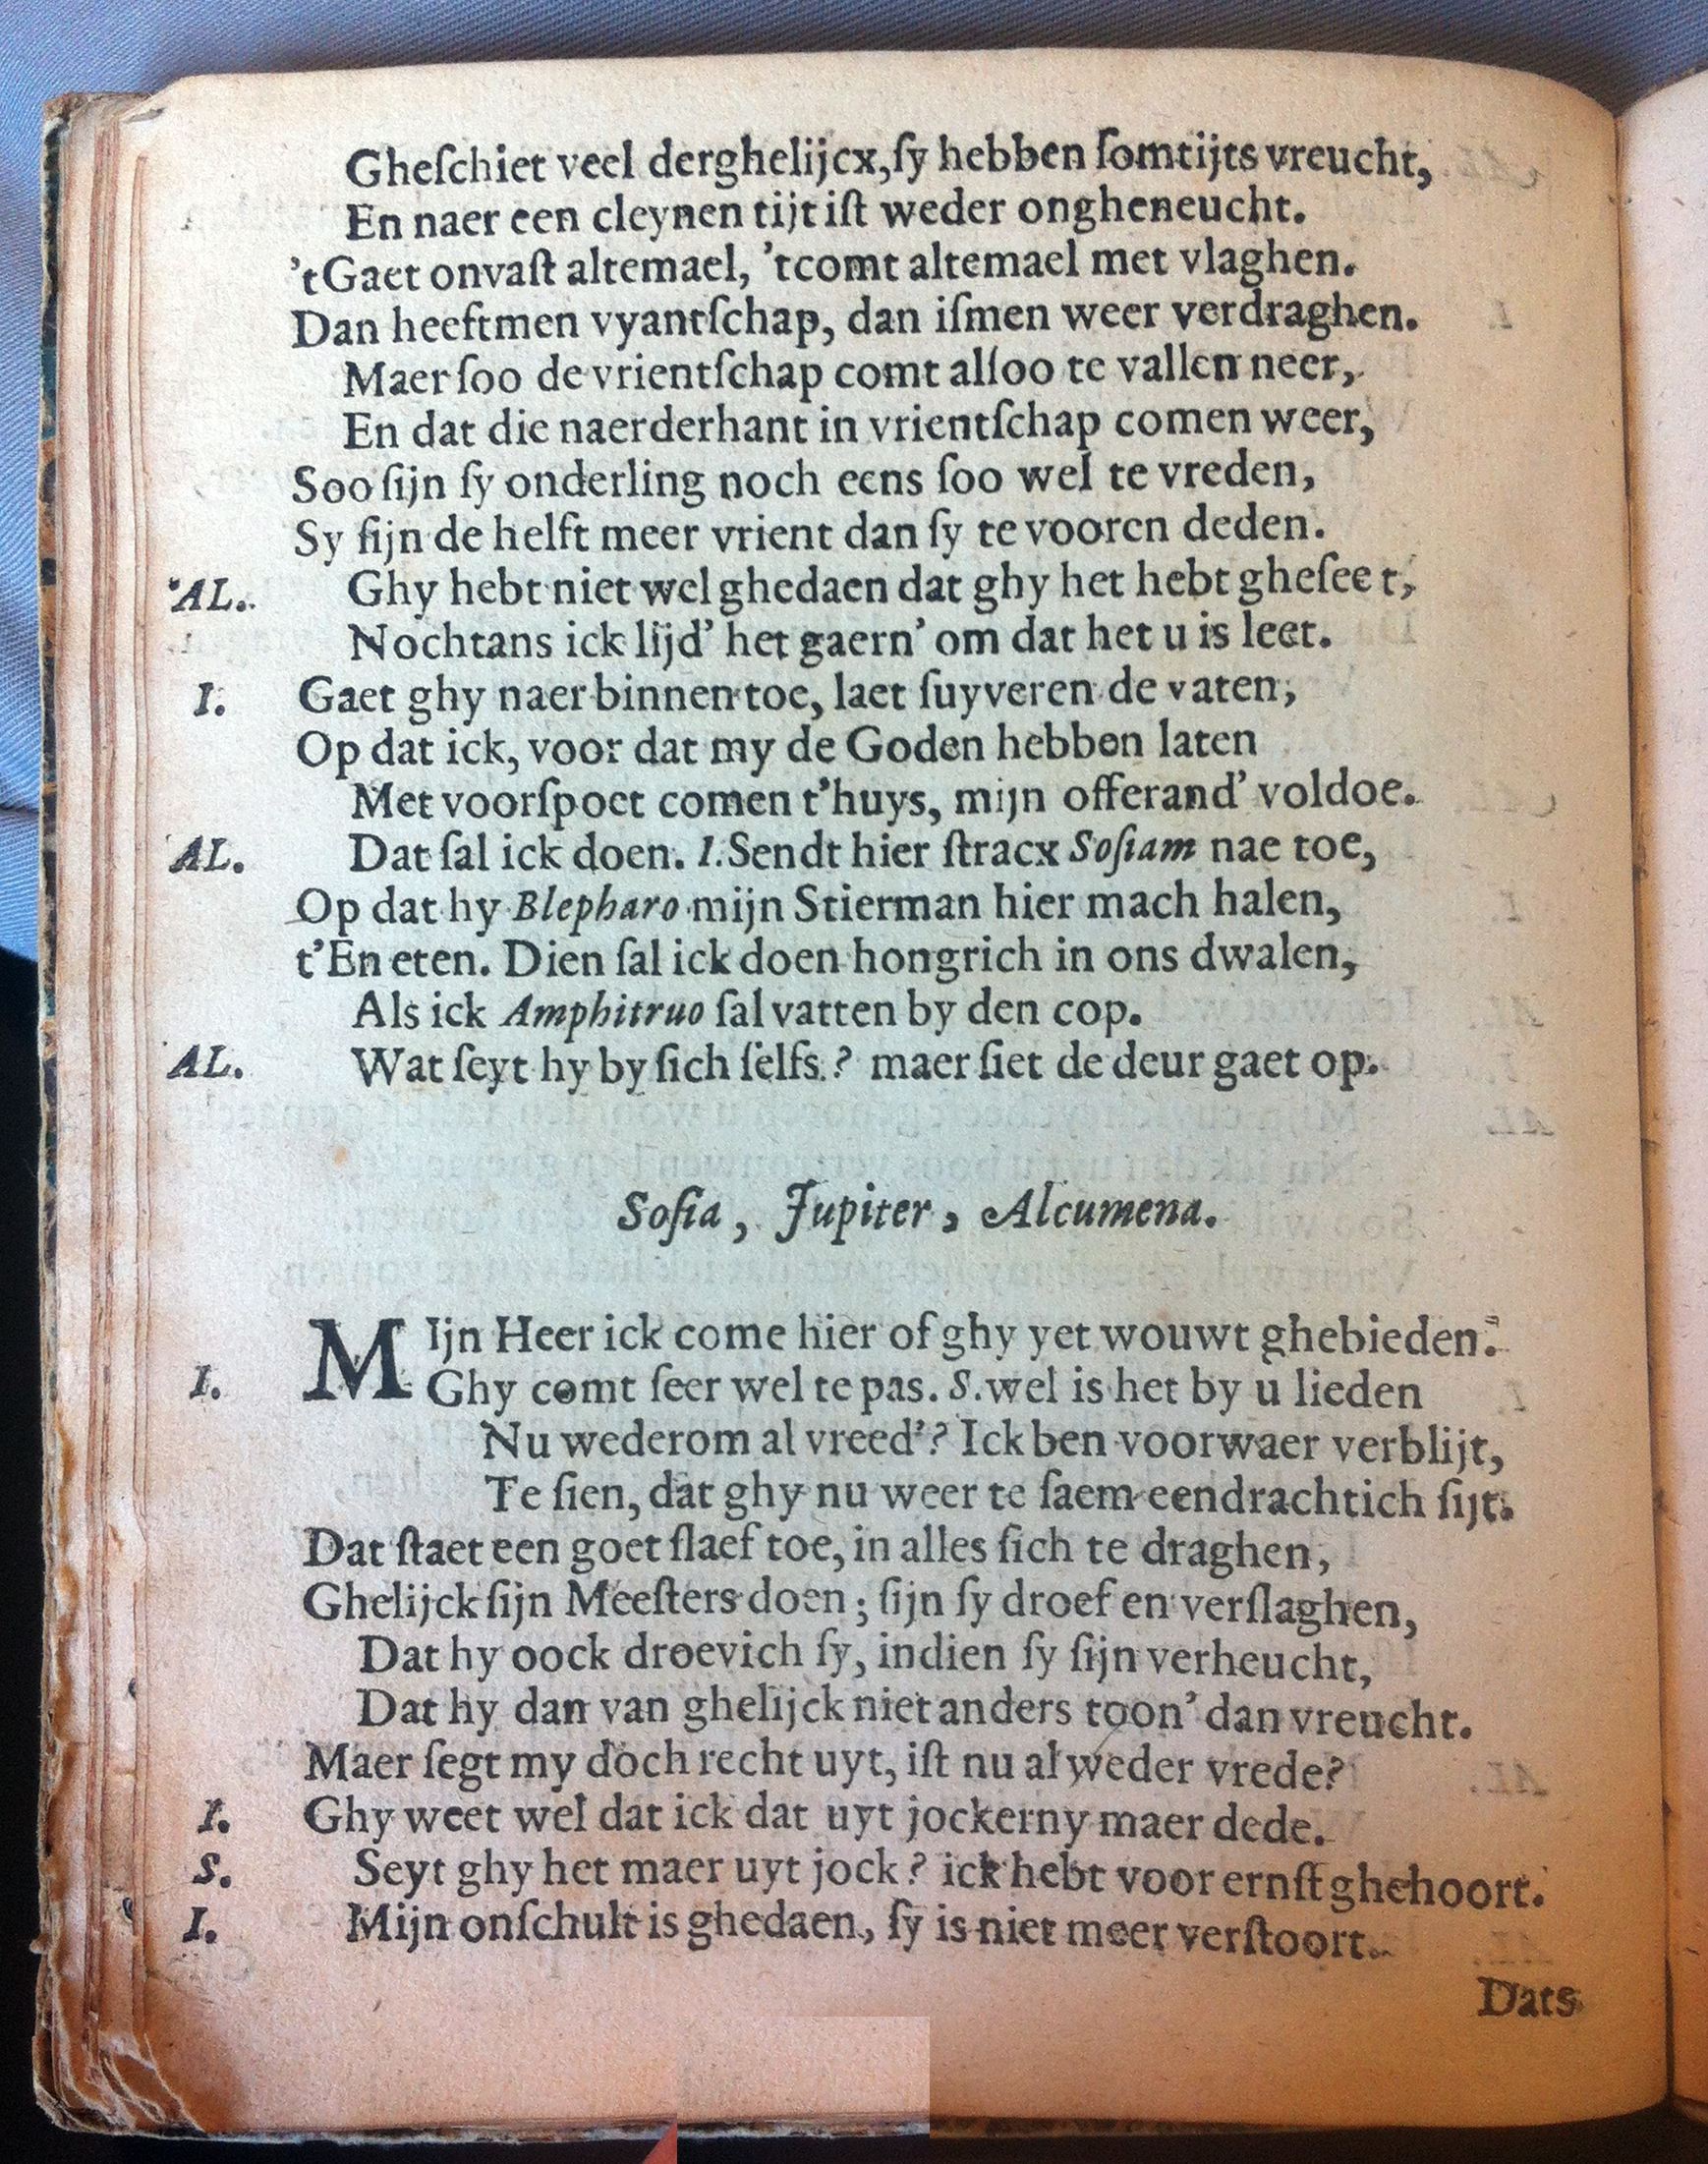 Gheſchiet veel derghelijcx, ſy hebben ſomtijts vreucht,
En naer een cleynen tijt iſt weder ongheneucht.
't Gaet onvaſt altemael, 'tcomt altemael met vlaghen.
Dan heeftmen vyantſchap, dan iſmen weer verdraghen.
Maer ſoo de vrientſchap comt alſoo te vallen neer,
En dat die naerderhant in vrientſchap comen weer,
Soo ſijn ſy onderling noch eens ſoo wel te vreden,
Sy ſijn de helft meer vrient dan ſy te vooren deden.
AL. Ghy hebt niet wel ghedaen dat ghy het hebt gheſeet,
Nochtans ick lijd' het gaern' om dat het u is leet.
I. Gaet ghy naer binnen toe, laet ſuyveren de vaten,
Op dat ick, voor dat my de Goden hebben laten
Met voorſpoet comen t'huys, mijn offerand' voldoe.
AL. Dat ſal ick doen. I. Sendt hier ſtracx Soſiam nae toe,
Op dat hy Blepharo mijn Stierman hier mach halen,
t'En eten. Dien ſal ick doen hongrich in ons dwalen,
Als ick Amphitruo ſal vatten by den cop.
AL. Wat ſeyt hy by ſich ſelfs? maer ſiet de deur gaet op.
Soſia, Jupiter, Alcumena.
MIjn Heer ick come hier of ghy yet wouwt ghebieden.
I. Ghy comt ſeer wel te pas. S. wel is het by u lieden
Nu wederom al vreed'? Ick ben voorwaer verblijt,
Te ſien, dat ghy nu weer te ſaem eendrachtich ſijt.
Dat ſtaet een goet ſlaef toe, in alles ſich te draghen,
Ghelijck ſijn Meeſters doen; ſijn ſy droef en verſlaghen,
Dat hy oock droevich ſy, indien ſy ſijn verheucht,
Dat hy dan van ghelijck niet anders toon' dan vreucht.
Maer ſegt my doch recht uyt, iſt nu al weder vrede?
I. Ghy weet wel dat ick dat uyt jockerny maer dede.
S. Seyt ghy het maer uyt jock? ick hebt voor ernſt ghehoort.
I. Mijn onſchult is ghedaen, ſy is niet meer verſtoort.
Dats